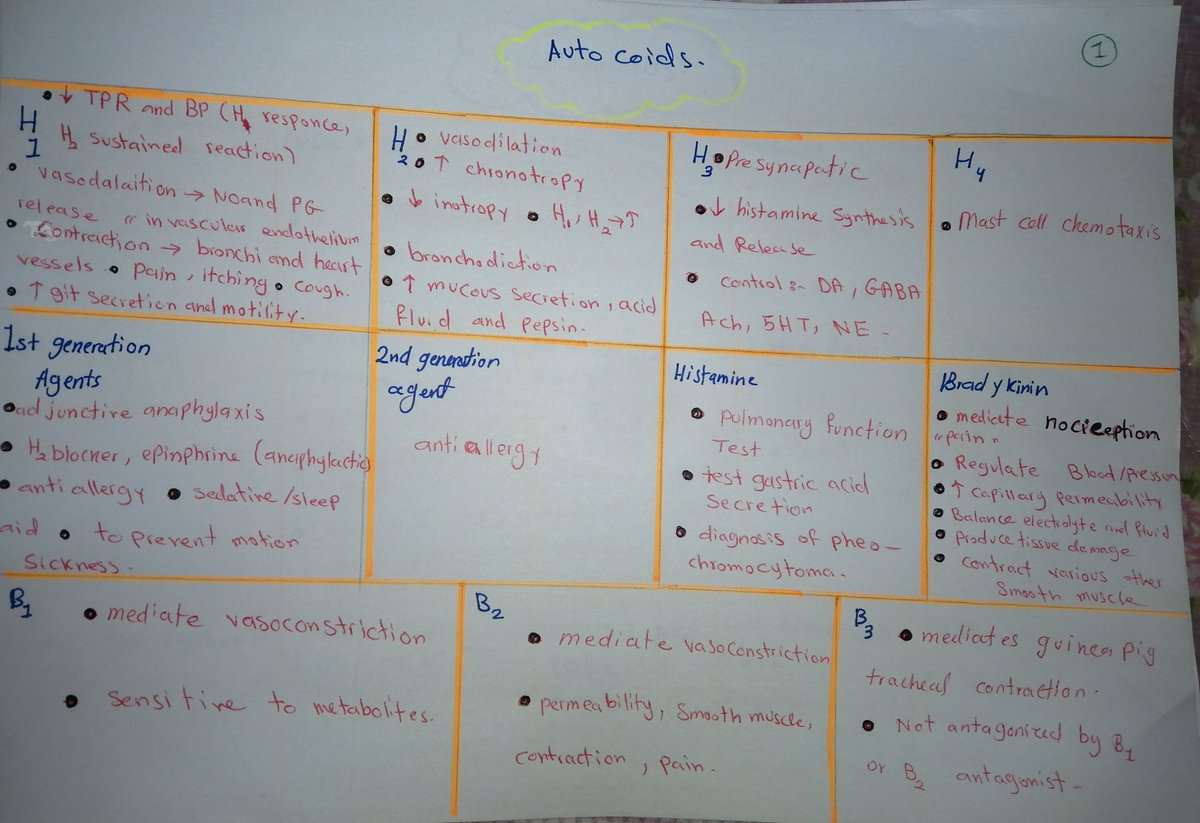 Auto coids.
1
H1
• ↓ TPR and BP (H1 responce,
H2 sustained reaction)
• vasodalaition → NO and PG
release " in vascular endothelium
• Contraction → bronchi and heart
vessels • pain, itching • cough.
• ↑ git secretion and motility.
H2
• vasodilation
• ↑ chronotropy
• ↓ inotropy • H1, H2 → ↑
• bronchodiation
• ↑ mucous secretion, acid
fluid and pepsin.
H3
• Presynapatic
• ↓ histamine synthesis
and Release
• control :- DA, GABA
Ach, 5HT, NE -
H4
• Mast cell chemotaxis
1st generation
Agents
• adjunctive anaphylaxis
• H2 blocker, epinphrine (anaphylactic)
• anti allergy • sedative/sleep
aid • to prevent motion
sickness.
2nd generation
agent
anti allergy
Histamine
• pulmonary function
Test
• test gastric acid
secretion
• diagnosis of pheo-
chromocytoma.
Bradykinin
• mediate nocieeption
"pain"
• Regulate Blood/pressure
• ↑ capillary permeability
• Balance electrolyte and fluid
• produce tissue damage
• contract various other
Smooth muscle
B1
• mediate vasoconstriction
• sensitive to metabolites.
B2
• mediate vasoconstriction
• permeability, Smooth muscle,
contraction, pain.
B3
• mediates guinea pig
tracheal contraction.
• Not antagonized by B1
or B2 antagonist -